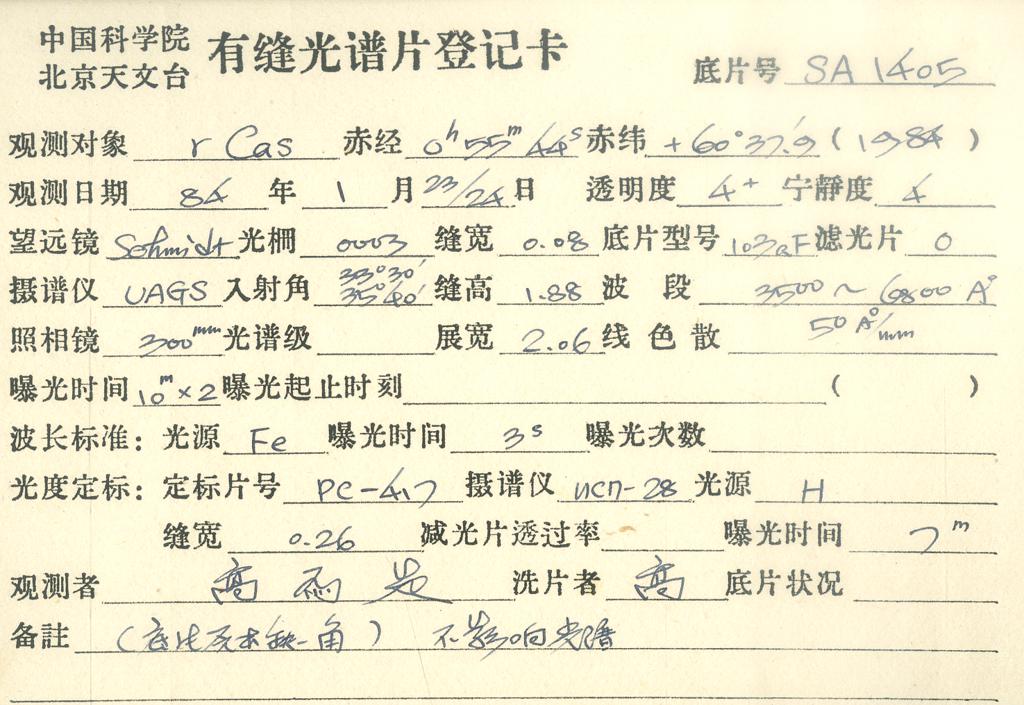 中国科学院
北京天文台
有缝光谱片登记卡
底片号 SA 1405
观测对象 r Cas 赤经 0h 55m 44s 赤纬 +60°37.'9 (1984)
观测日期 84 年 1 月 23/24 日 透明度 4+ 宁静度 4
望远镜 Schmidt 光栅 0003 缝宽 0.08 底片型号 103aF 滤光片 0
摄谱仪 UAGS 入射角 33°30' 35°40' 缝高 1.88 波段 3500 ~ 6800 A°
照相镜 300mm 光谱级 展宽 2.06 线色散 50 A°/mm
曝光时间 10m×2 曝光起止时刻 ( )
波长标准: 光源 Fe 曝光时间 3s 曝光次数
光度定标: 定标片号 PC-417 摄谱仪 ИСП-28 光源 H
缝宽 0.26 减光片透过率 曝光时间 7m
观测者 高 洗片者 高 底片状况
备註 (底片原本缺一角) 不影响光谱